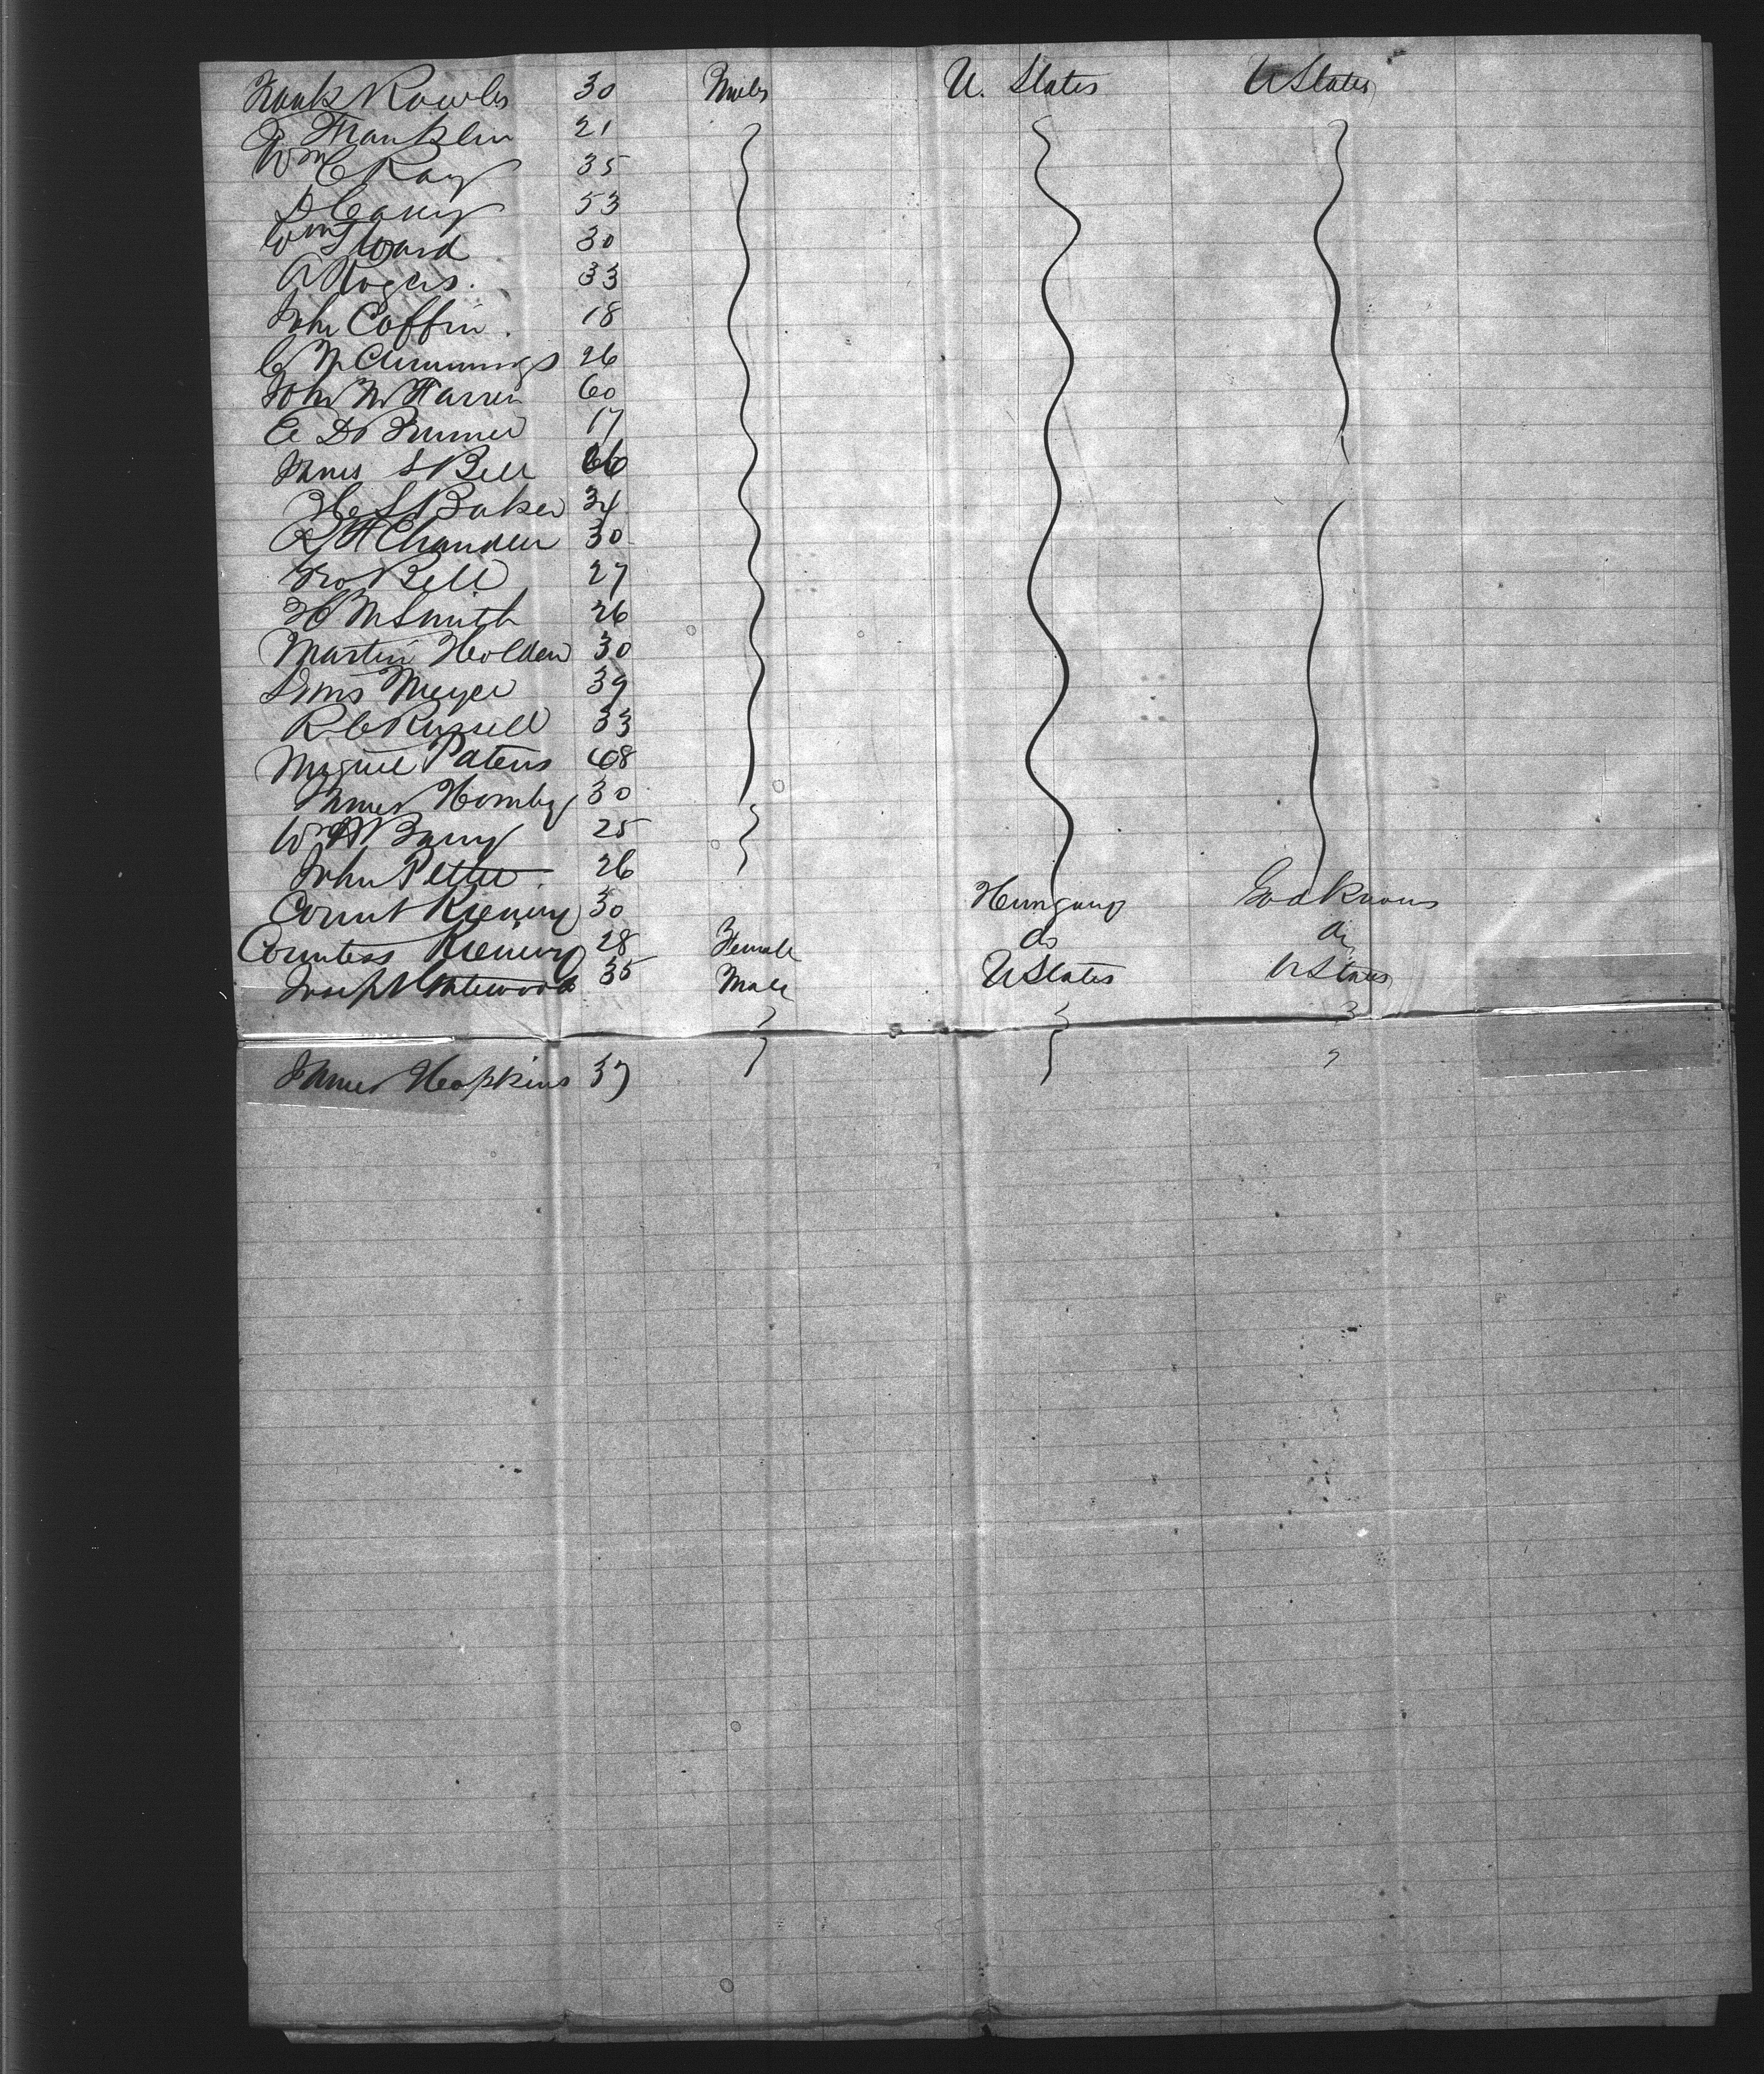 Frank Rowles 30 Males U. States U States
Franklin 21
Wm C Ray 35
D Carey 53
Wm S Ward 30
A Rogers. 33
John Coffin. 18
C M Cummings 26
John W Harris 60
E D Brumer 17
James S Bell
He S Baker 34
R H Chandler 30
Bell 27
H M Smith 26
Martin Holden 30
Meyer 39
R C Russell 33
Patens 48
James Hornby 30
Wm H Barry 25
John Pettee. 26
Count 30 Hungary God Knows
Countess 28 Female do do
Joseph Gatewood 35 Male U States U States
James Hopkins 37